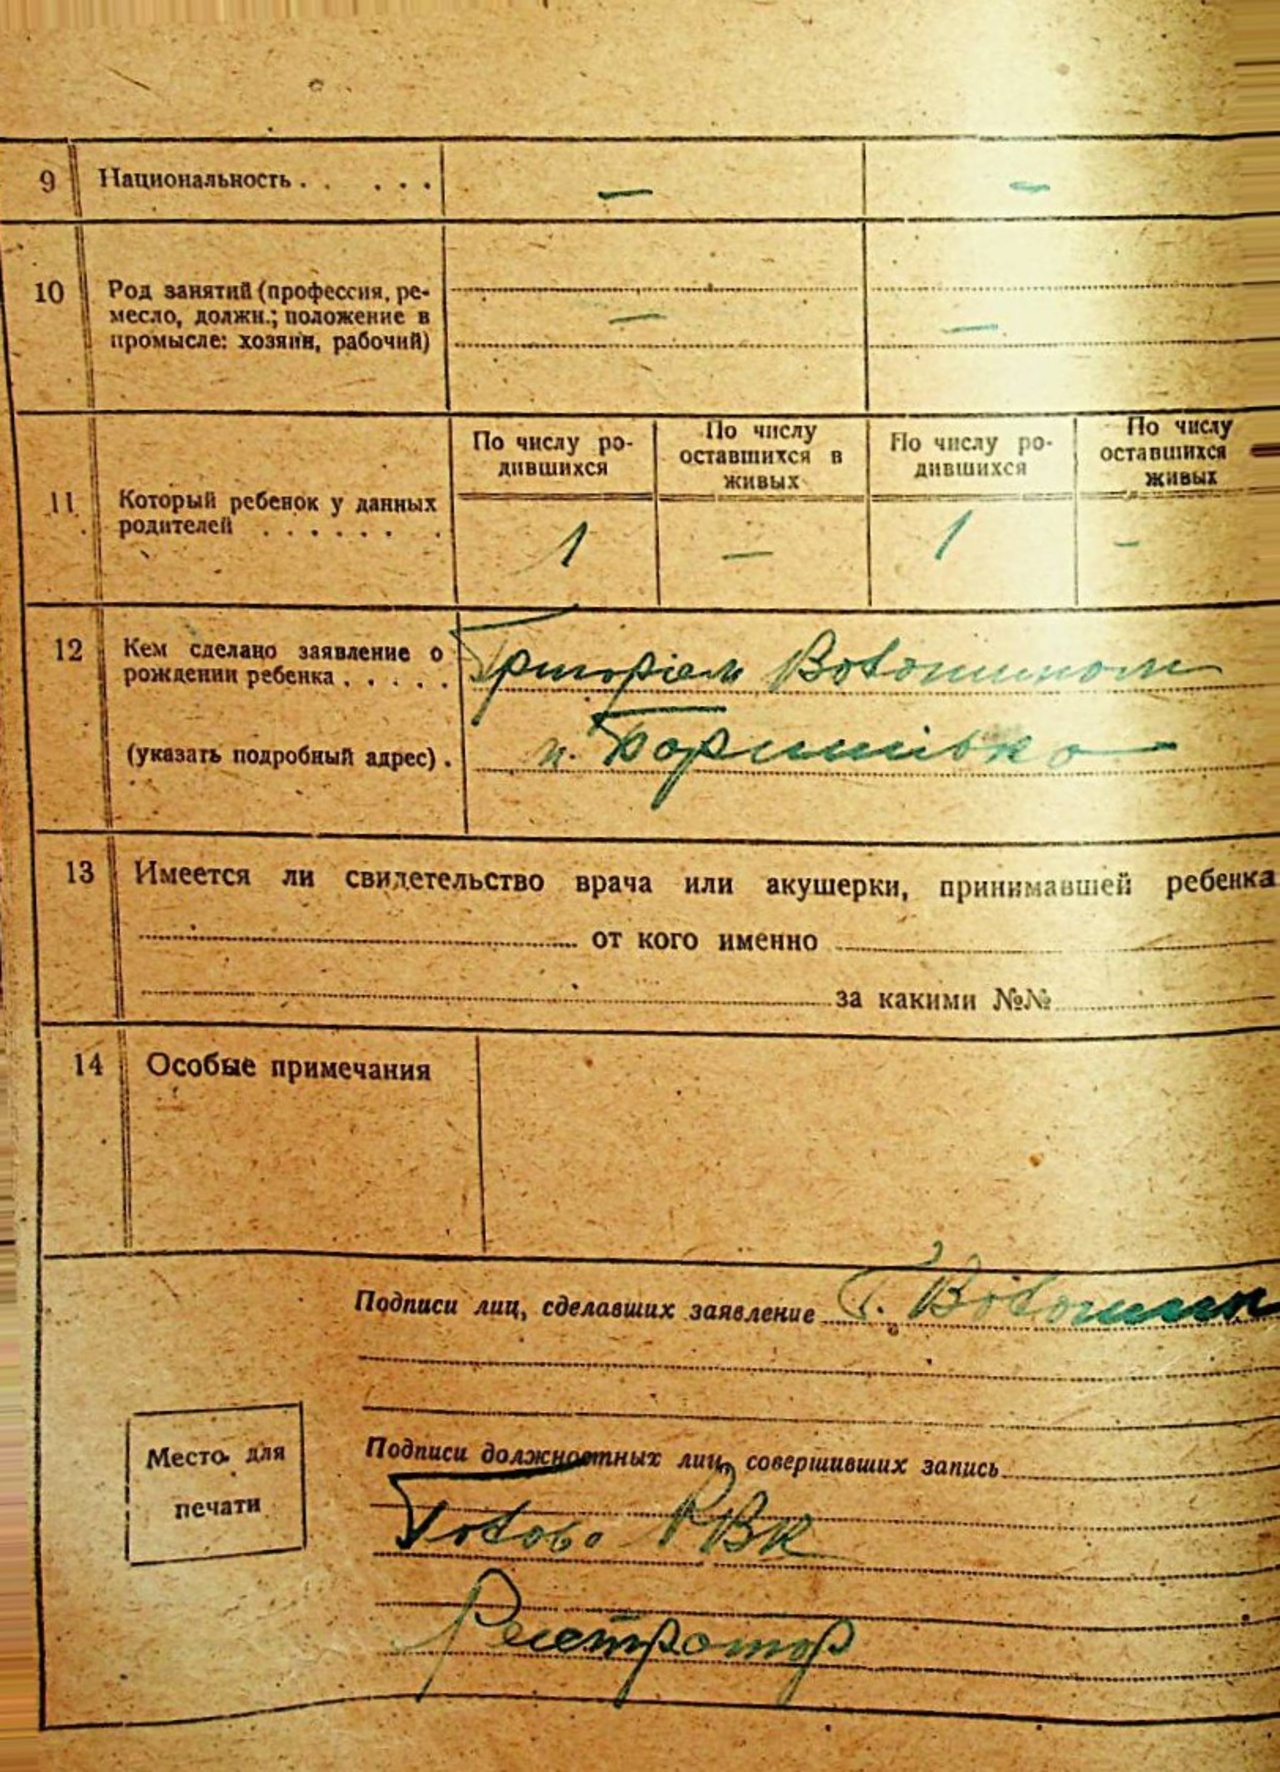 9 Национальность . . . . . — —
10 Род занятий (профессия, ре-
месло, должн.; положение в — —
промысле: хозяин, рабочий)
По числу ро- По числу По числу ро- По числу
дившихся оставшихся в дившихся оставшихся
живых живых
11 Который ребенок у данных
родителей . . . . . . . 1 — 1 -
12 Кем сделано заявление о
рождении ребенка . . . . . Григоріем Волошином
(указать подробный адрес) . м. Бориспілка
13 Имеется ли свидетельство врача или акушерки, принимавшей ребенка
от кого именно
за какими №№
14 Особые примечания
Подписи лиц, сделавших заявление Г. Волошин
Подписи должностных лиц, совершивших запись
Место для
печати
Голова РВК
Реєстратор